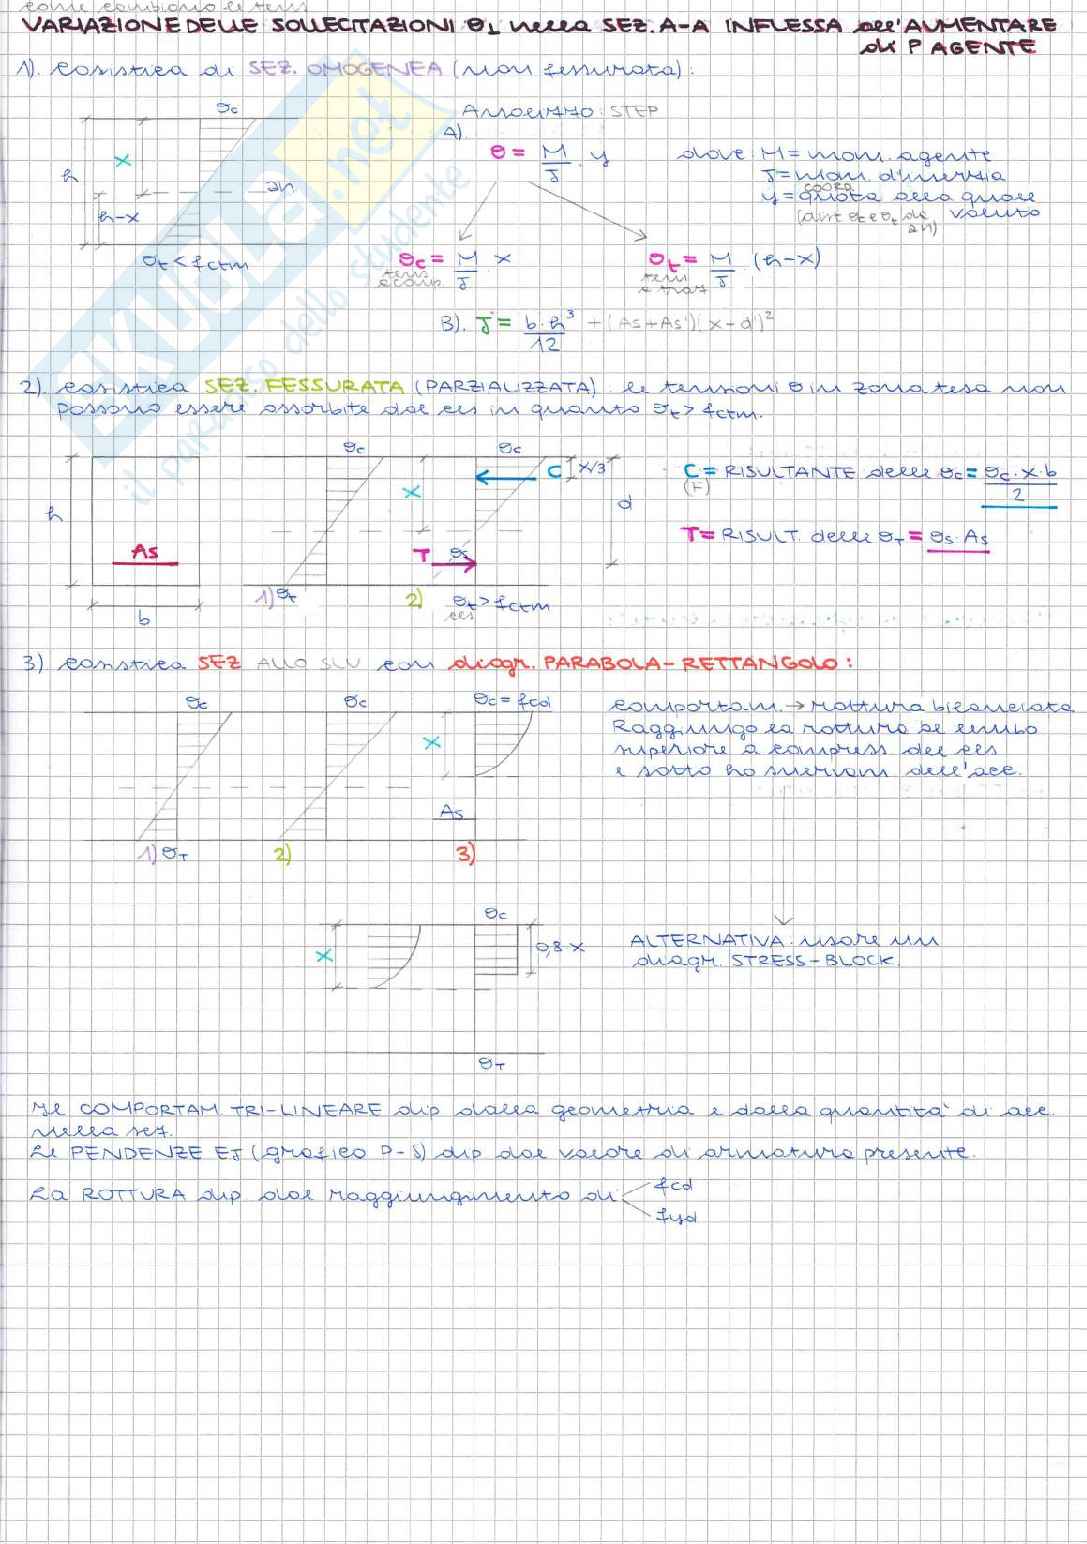 come cambiano le tens
VARIAZIONE DELLE SOLLECITAZIONI σ⊥ nella SEZ. A-A INFLESSA all'AUMENTARE
di P AGENTE
1). casistica di SEZ. OMOGENEA (non fessurata):
σc
x
h
an
h-x
σt < fctm
STEP
A)
σ = M/J · y
dove M = mom. agente
J = mom. d'inerzia
y = quota alla quale
valuto
σc = M/J · x
tens
σt = M/J · (h-x)
tens
B). J = b·h³/12 + (As+As')(x-d')²
2). casistica SEZ. FESSURATA (PARZIALIZZATA) le tensioni σ in zona tesa non
possono essere assorbite dal cls in quanto σt > fctm.
σc
σc
C
x/3
x
h
d
As
T
σs
1) σt
2)
σt > fctm
cls
b
C = RISULTANTE delle σc = σc·x·b/2
T = RISULT. delle σT = σs·As
3) casistica SEZ ALLO SLU con diagr. PARABOLA-RETTANGOLO:
σc
σc
σc = fcd
x
As
1) σT
2)
3)
comportam. → rottura bilanciata
Raggiungo la rottura al lembo
superiore a compress del cls
e sotto ho snervam dell'acc.
σc
x
0,8 x
σT
ALTERNATIVA: usare un
diagr. STRESS-BLOCK.
Il COMPORTAM TRI-LINEARE dip dalla geometria e dalla quantità di acc.
nella sez.
Le PENDENZE EJ (grafico P-δ) dip dal valore di armatura presente.
La ROTTURA dip dal raggiungimento di
fcd
fyd